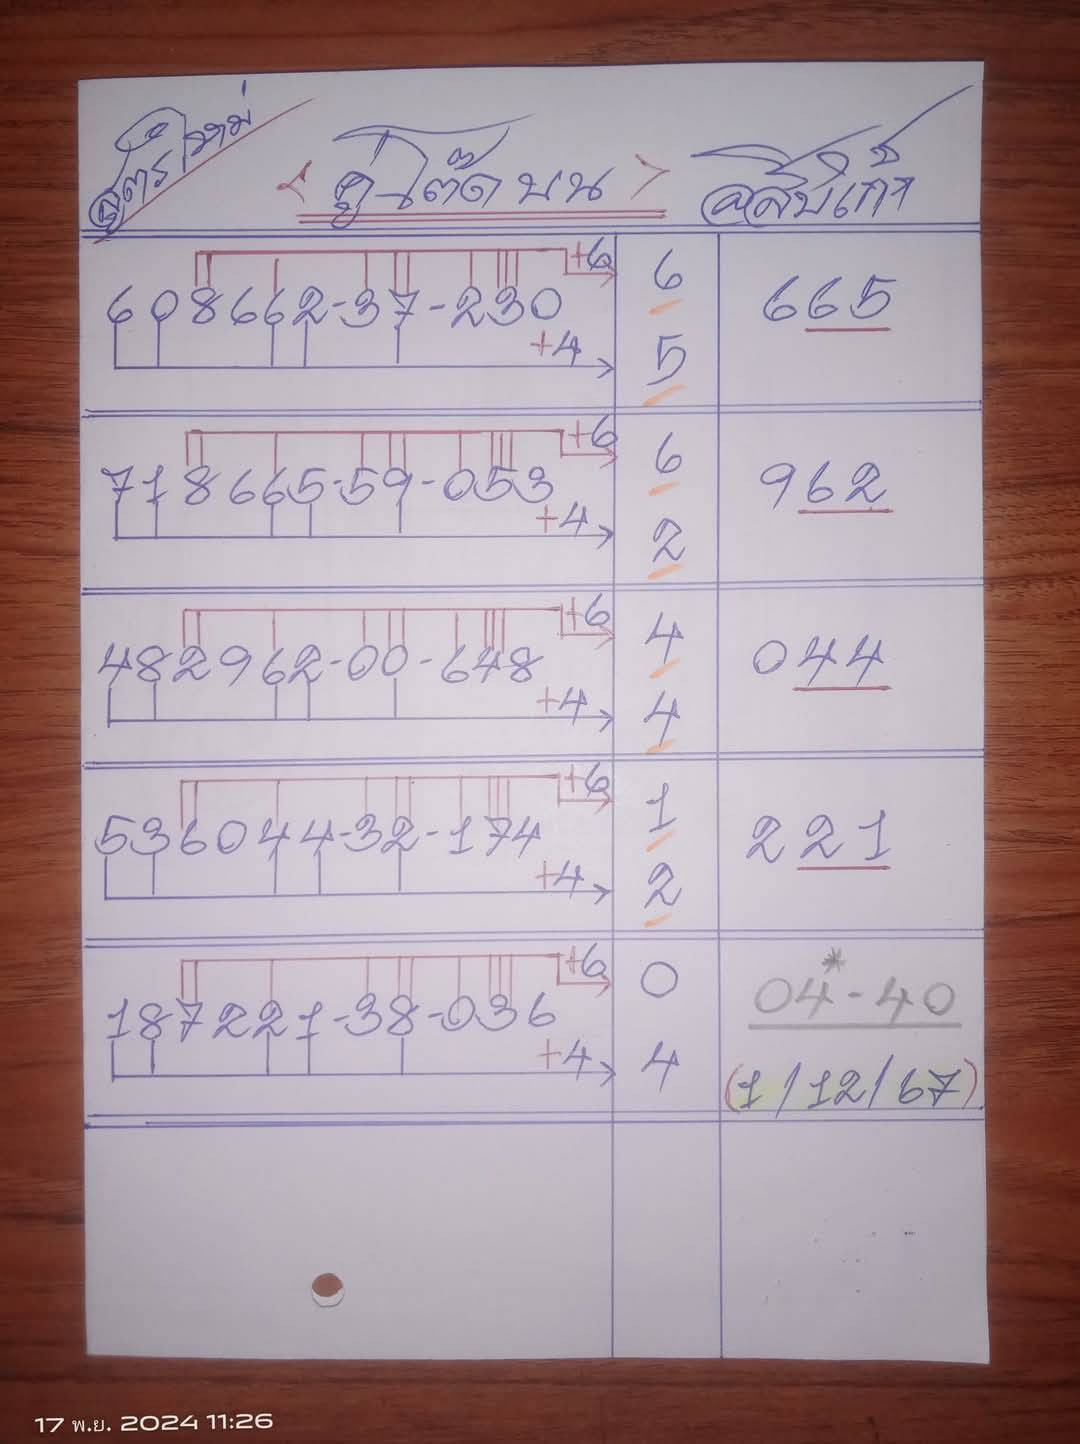 สูตรใหม่
< คู่โต๊ดบน >
+6
608662-37-230
+4
6
5
665
+6
718665-59-053
+4
6
2
962
+6
482962-00-648
+4
4
4
044
+6
536044-32-174
+4
1
2
221
+6
187221-38-036
+4
0
4
*
04-40
(1/12/67)
17 พ.ย. 2024 11:26